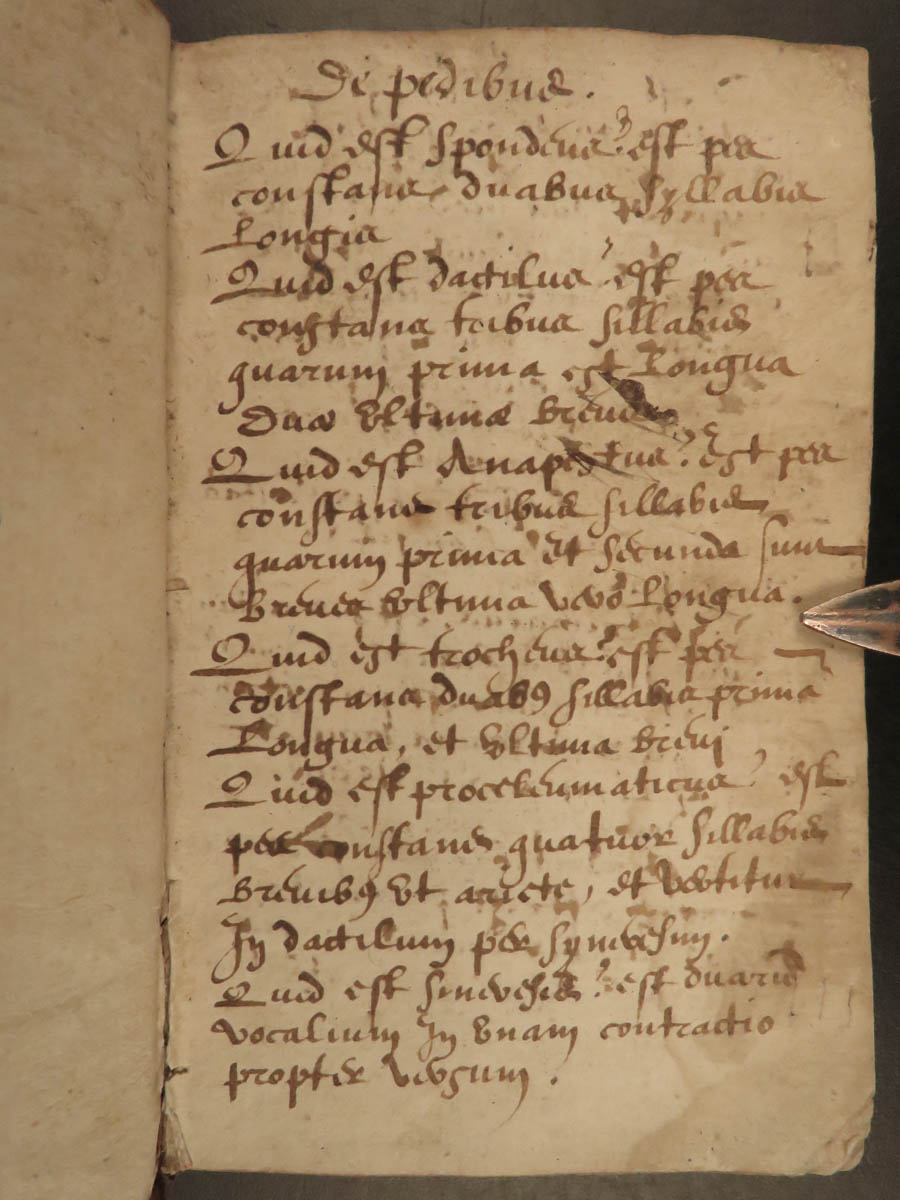 De pedibus.
Quid est spondeus? est pes
constans duabus syllabis
Longis
Quid est dactilus? est pes
constans tribus sillabis
quarum prima est Longua
Duæ vltimæ breues
Quid est Anapestus? est pes
constans tribus sillabis
quarum prima et secunda sunt
breues vltima vero Longua.
Quid est trocheus? est pes
constans duabꝰ sillabis prima
Longua, et vltima breui
Quid est proceleumaticus? est
pes constans quatuor sillabis
breuibꝰ vt ariete, et vertitur
In dactilum per syneresim.
Quid est sineresis? est duarū
vocalium In vnam contractio
propter versum.